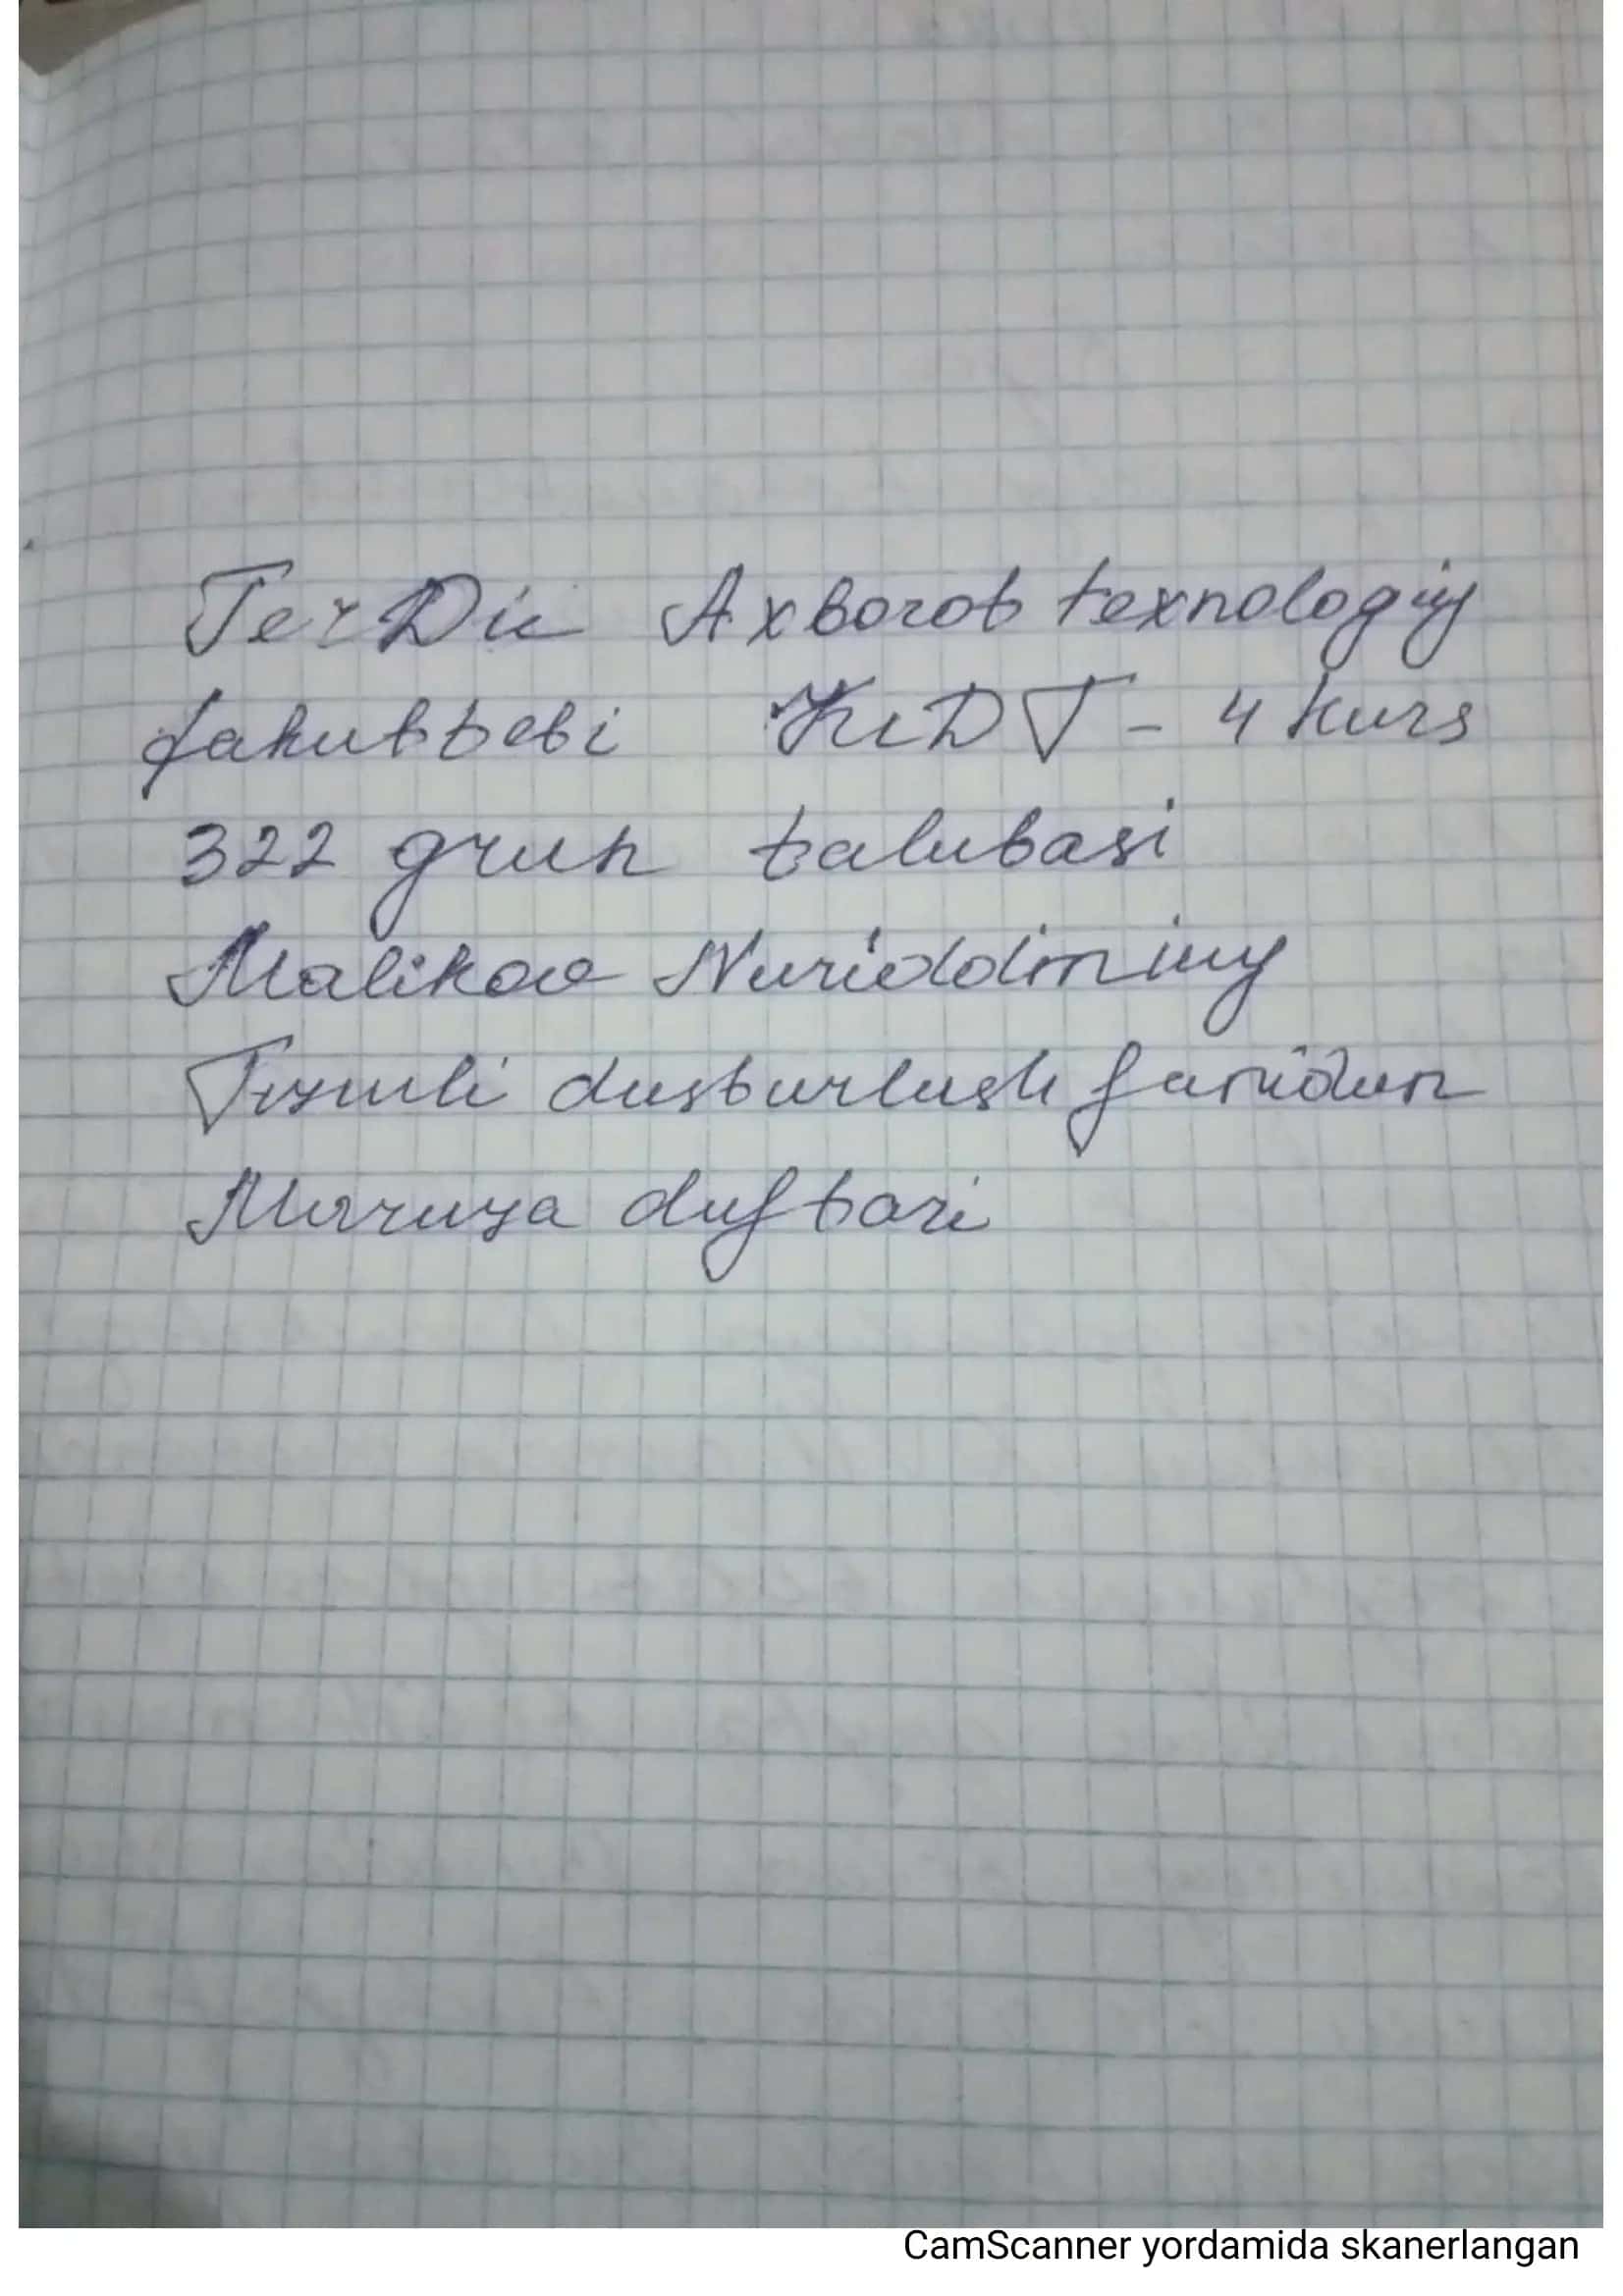 TerDu Axborot texnologiy
fakulteti KIDT - 4 kurs
322 gruh talabasi
Malikov Nuriddining
Tizimli dasturlash fanidan
Maruza daftari
CamScanner yordamida skanerlangan